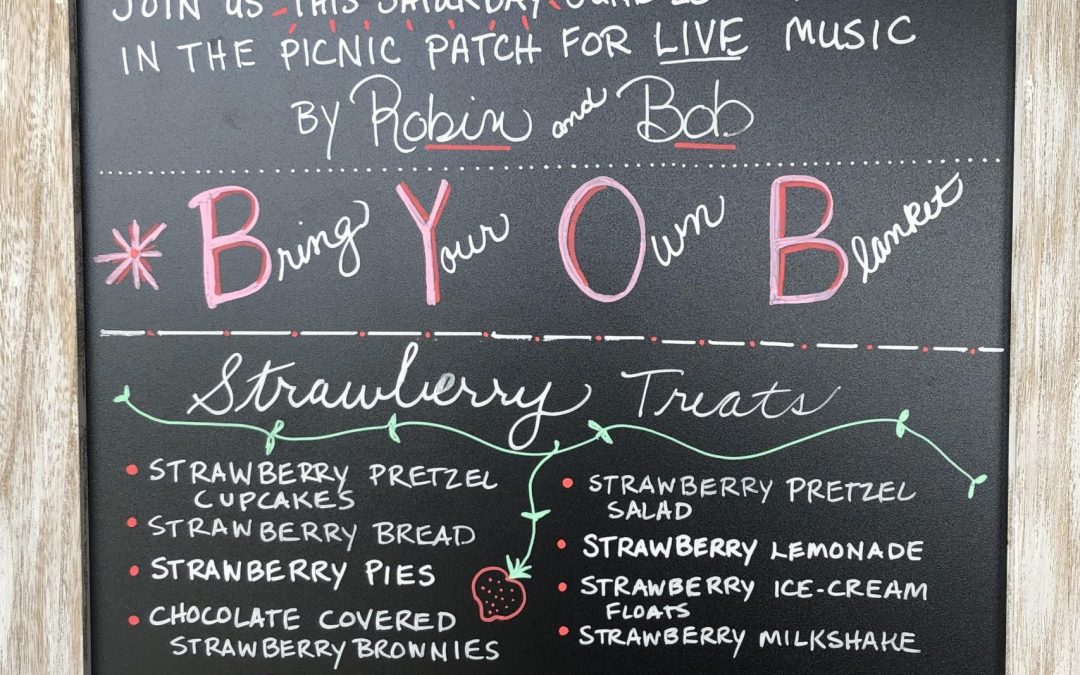 JOIN US THIS SATURDAY JUNE
IN THE PICNIC PATCH FOR LIVE MUSIC
BY Robin and Bob
* Bring Your Own Blanket
Strawberry Treats
• STRAWBERRY PRETZEL
CUPCAKES
• STRAWBERRY BREAD
• STRAWBERRY PIES
• CHOCOLATE COVERED
STRAWBERRY BROWNIES
• STRAWBERRY PRETZEL
SALAD
• STRAWBERRY LEMONADE
• STRAWBERRY ICE-CREAM
FLOATS
• STRAWBERRY MILKSHAKE